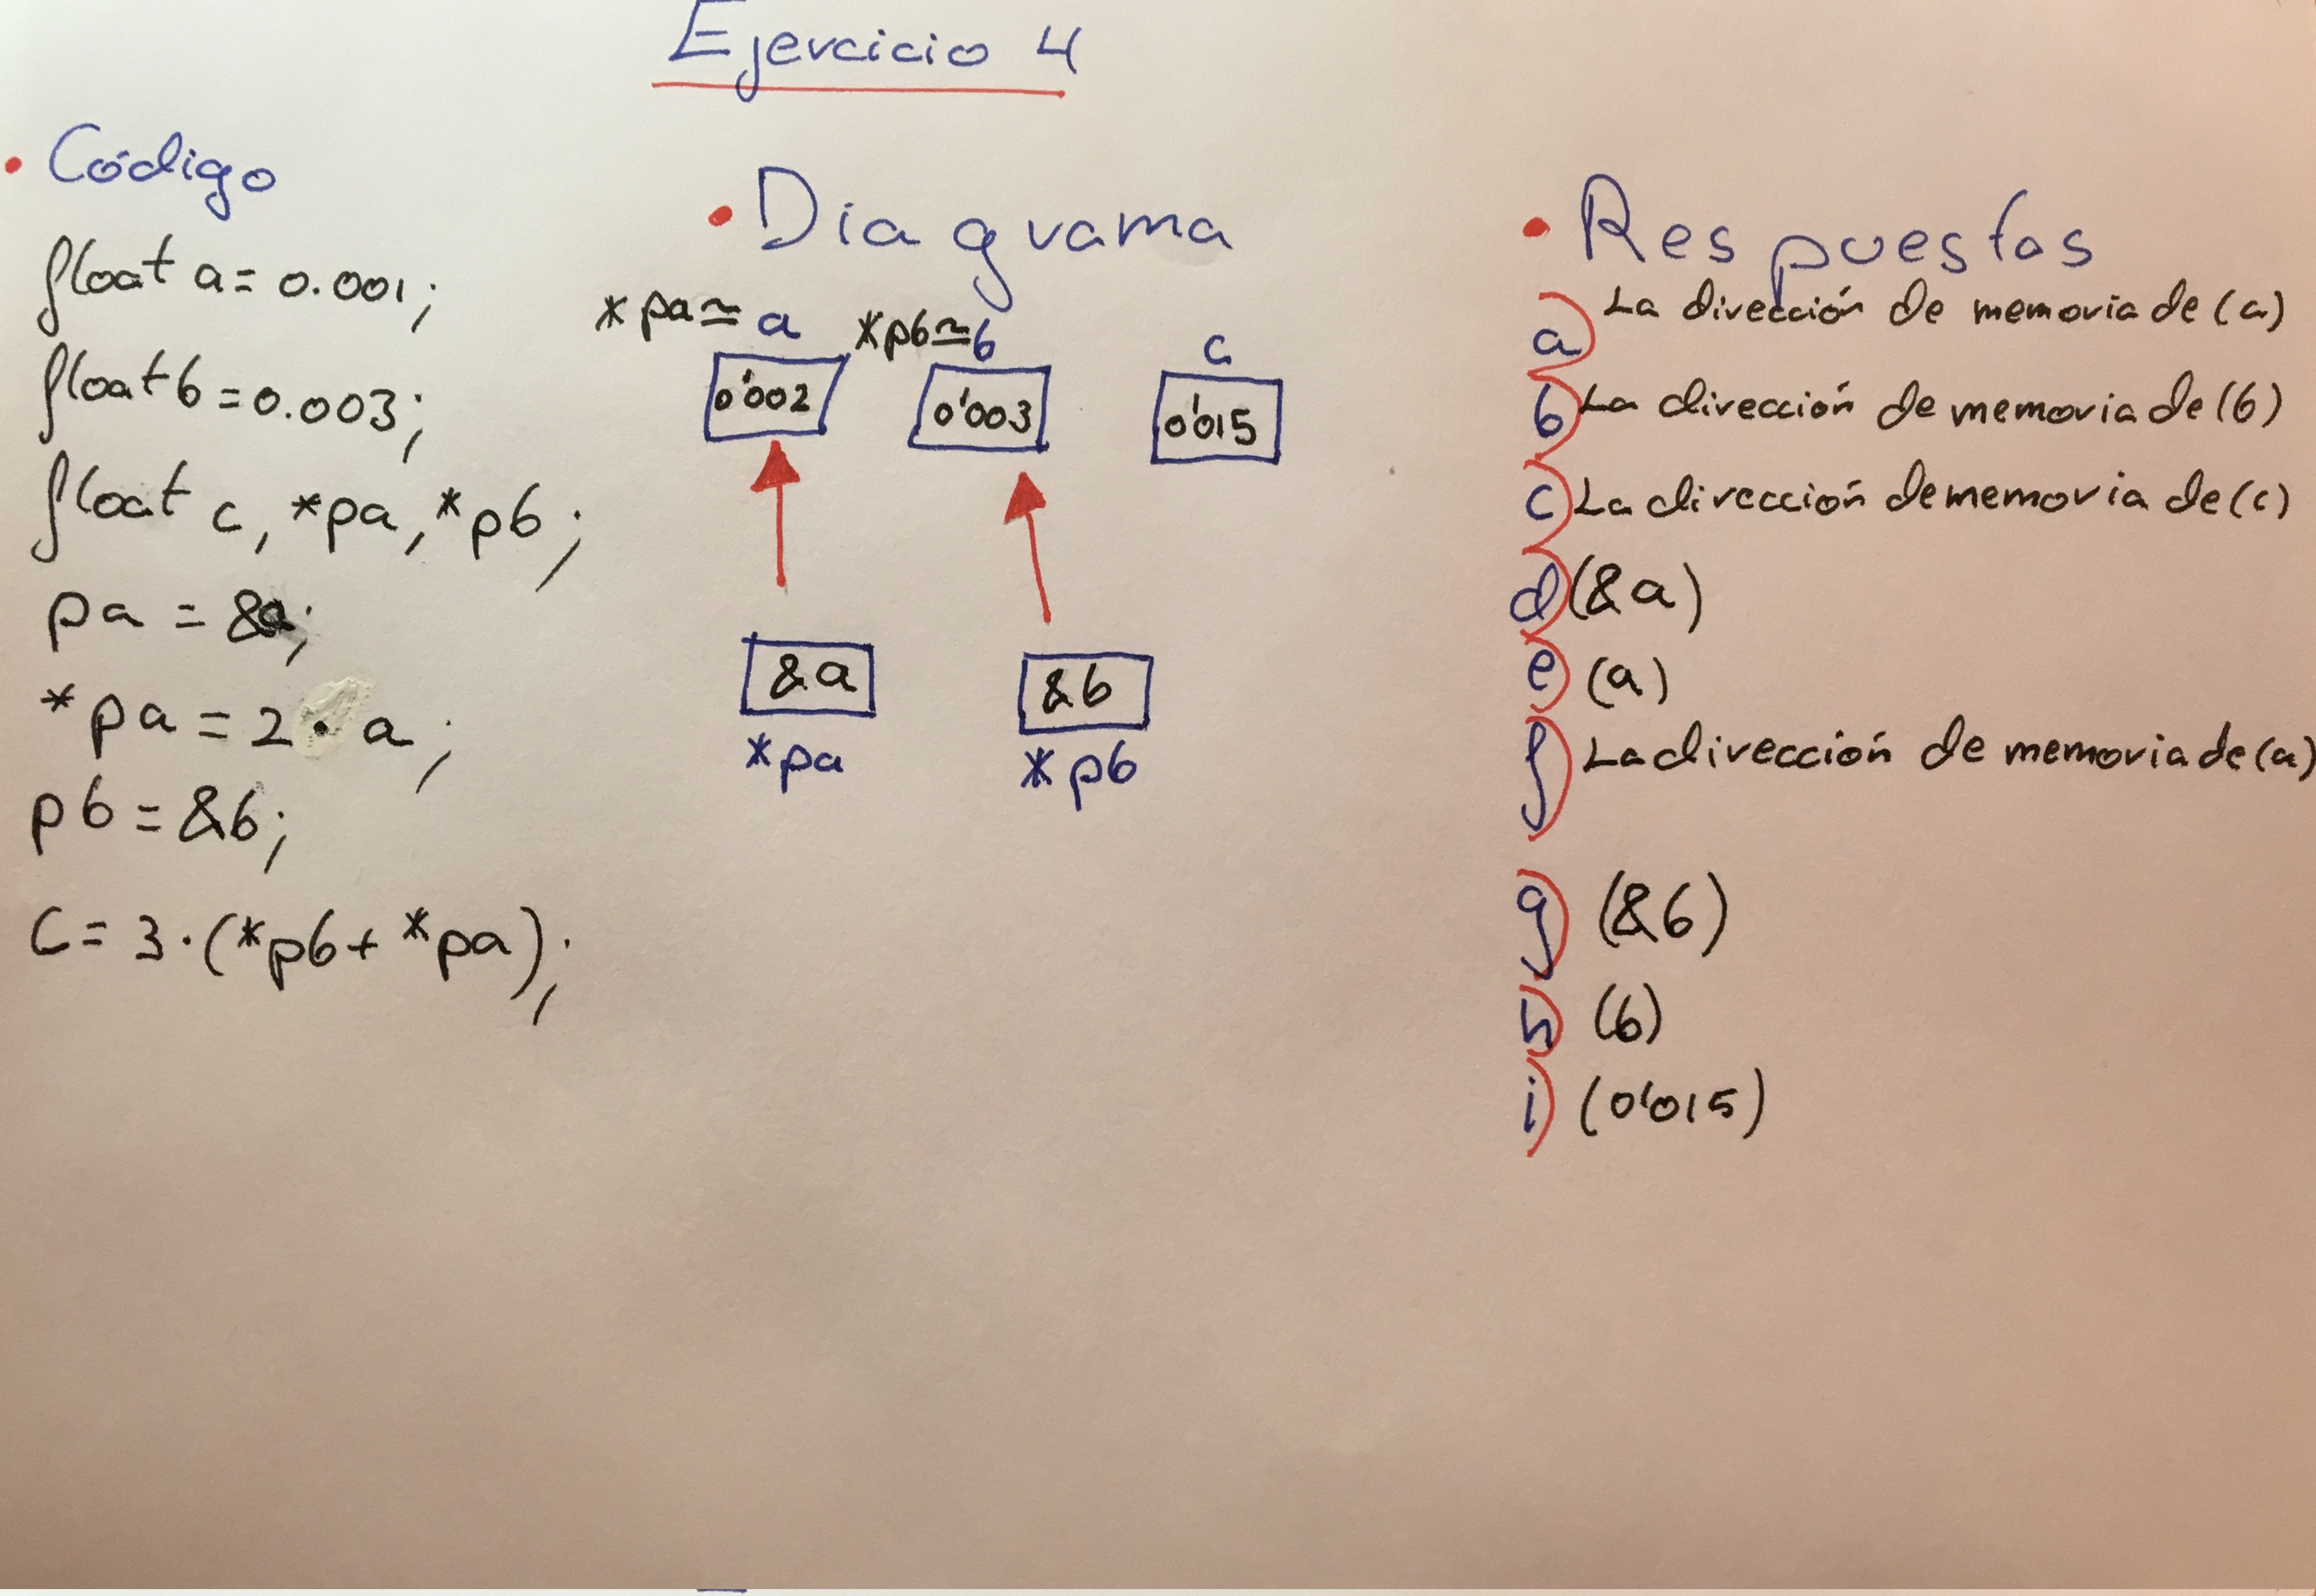 Ejercicio 4
• Código
float a = 0.001;
float b = 0.003;
float c, *pa, *pb;
pa = &a;
*pa = 2 · a;
pb = &b;
C = 3 · (*pb + *pa);
• Diagrama
*pa ≃ a
*pb ≃ b
c
0'002
0'003
0'015
&a
&b
*pa
*pb
• Respuestas
a) La dirección de memoria de (a)
b) La dirección de memoria de (b)
c) La dirección de memoria de (c)
d) (&a)
e) (a)
f) La dirección de memoria de (a)
g) (&b)
h) (b)
i) (0'015)